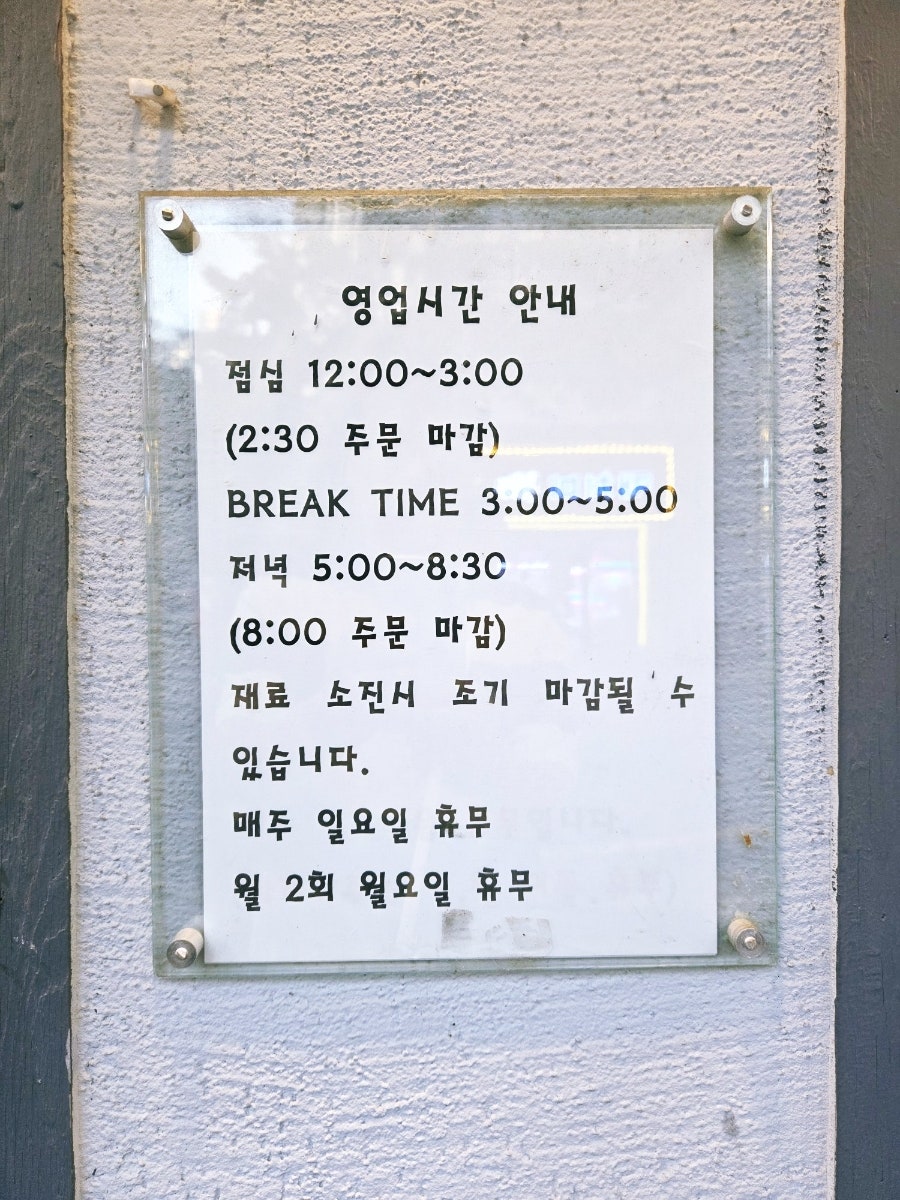 영업시간 안내
점심 12:00~3:00
(2:30 주문 마감)
BREAK TIME 3:00~5:00
저녁 5:00~8:30
(8:00 주문 마감)
재료 소진시 조기 마감될 수
있습니다.
매주 일요일 휴무
월 2회 월요일 휴무